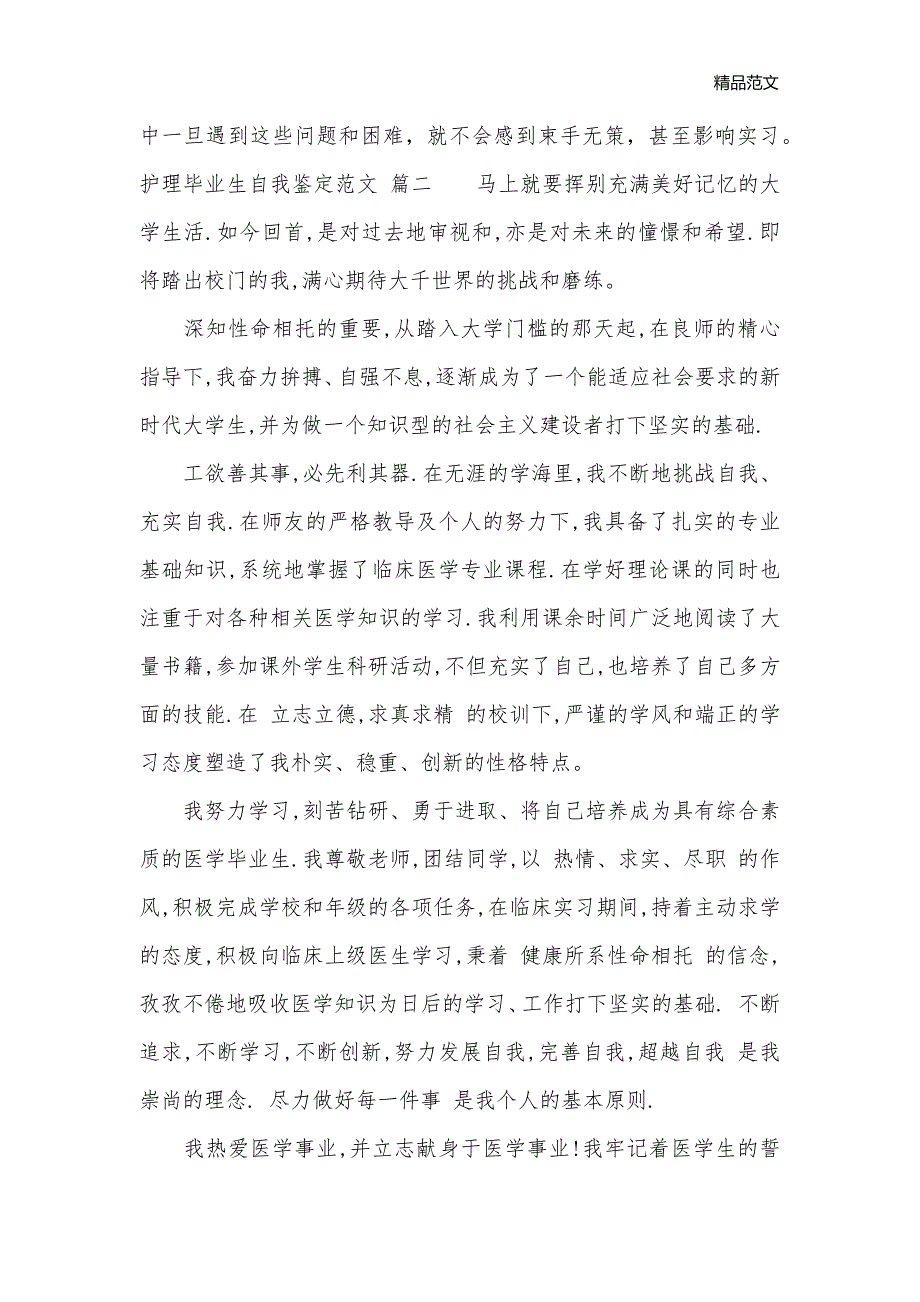 精品范文
中一旦遇到这些问题和困难，就不会感到束手无策，甚至影响实习。
护理毕业生自我鉴定范文 篇二　　马上就要挥别充满美好记忆的大
学生活.如今回首,是对过去地审视和,亦是对未来的憧憬和希望.即
将踏出校门的我,满心期待大千世界的挑战和磨练。
深知性命相托的重要,从踏入大学门槛的那天起,在良师的精心
指导下,我奋力拚搏、自强不息,逐渐成为了一个能适应社会要求的新
时代大学生,并为做一个知识型的社会主义建设者打下坚实的基础.
工欲善其事,必先利其器.在无涯的学海里,我不断地挑战自我、
充实自我.在师友的严格教导及个人的努力下,我具备了扎实的专业
基础知识,系统地掌握了临床医学专业课程.在学好理论课的同时也
注重于对各种相关医学知识的学习.我利用课余时间广泛地阅读了大
量书籍,参加课外学生科研活动,不但充实了自己,也培养了自己多方
面的技能.在 立志立德,求真求精 的校训下,严谨的学风和端正的学
习态度塑造了我朴实、稳重、创新的性格特点。
我努力学习,刻苦钻研、勇于进取、将自己培养成为具有综合素
质的医学毕业生.我尊敬老师,团结同学,以 热情、求实、尽职 的作
风,积极完成学校和年级的各项任务,在临床实习期间,持着主动求学
的态度,积极向临床上级医生学习,秉着 健康所系性命相托 的信念,
孜孜不倦地吸收医学知识为日后的学习、工作打下坚实的基础. 不断
追求,不断学习,不断创新,努力发展自我,完善自我,超越自我 是我
崇尚的理念. 尽力做好每一件事 是我个人的基本原则.
我热爱医学事业,并立志献身于医学事业!我牢记着医学生的誓